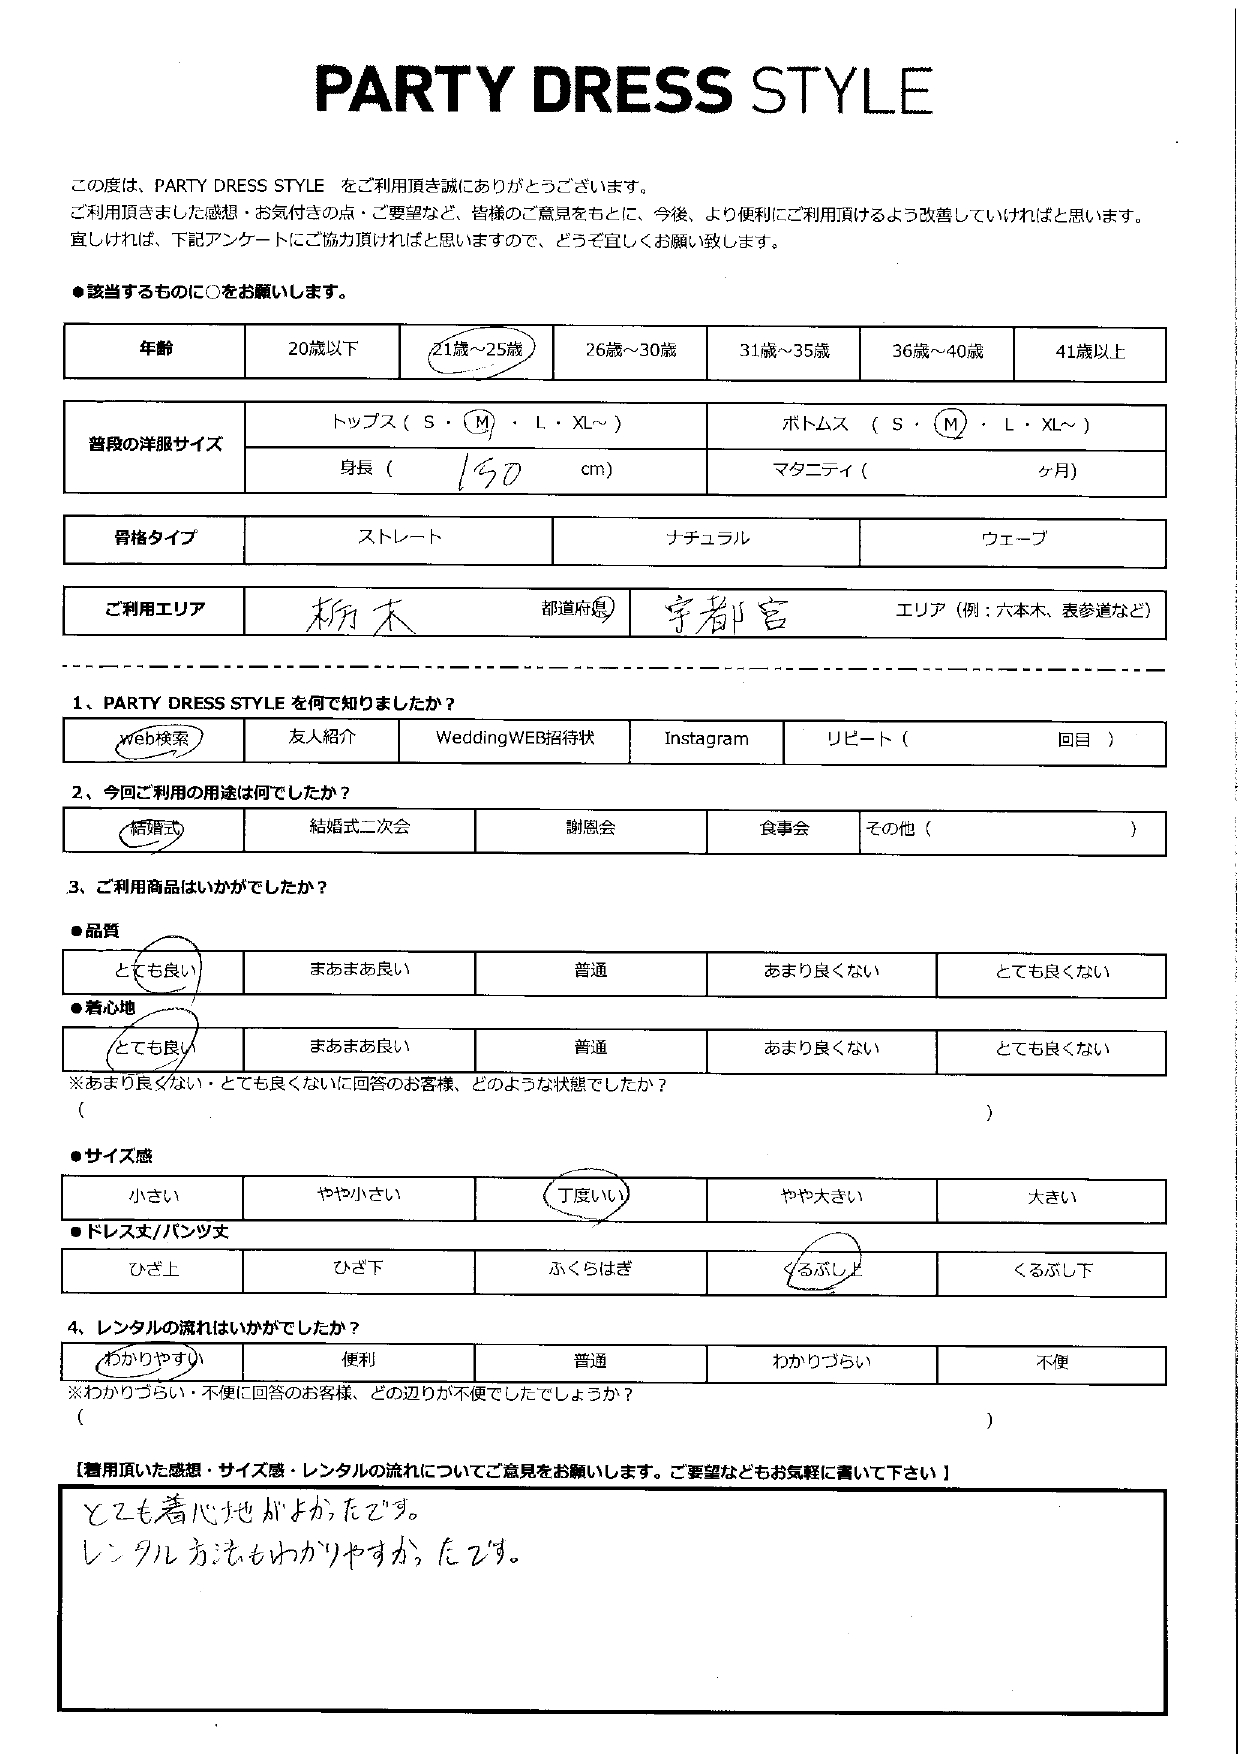 PARTY DRESS STYLE
この度は、PARTY DRESS STYLE をご利用頂き誠にありがとうございます。
ご利用頂きました感想・お気付きの点・ご要望など、皆様のご意見をもとに、今後、より便利にご利用頂けるよう改善していければと思います。
宜しければ、下記アンケートにご協力頂ければと思いますので、どうぞ宜しくお願い致します。
●該当するものに○をお願いします。
年齢 20歳以下 21歳～25歳 26歳～30歳 31歳～35歳 36歳～40歳 41歳以上
普段の洋服サイズ
トップス ( S ・ M ・ L ・ XL～ ) ボトムス ( S ・ M ・ L ・ XL～ )
身長 ( 150 cm) マタニティ ( ヶ月)
骨格タイプ ストレート ナチュラル ウェーブ
ご利用エリア 栃木 都道府県 宇都宮 エリア（例：六本木、表参道など）
1、PARTY DRESS STYLE を何で知りましたか？
web検索 友人紹介 WeddingWEB招待状 Instagram リピート ( 回目 )
2、今回ご利用の用途は何でしたか？
結婚式 結婚式二次会 謝恩会 食事会 その他 ( )
3、ご利用商品はいかがでしたか？
●品質
とても良い まあまあ良い 普通 あまり良くない とても良くない
●着心地
とても良い まあまあ良い 普通 あまり良くない とても良くない
※あまり良くない・とても良くないに回答のお客様、どのような状態でしたか？
( )
●サイズ感
小さい やや小さい 丁度いい やや大きい 大きい
●ドレス丈/パンツ丈
ひざ上 ひざ下 ふくらはぎ くるぶし上 くるぶし下
4、レンタルの流れはいかがでしたか？
わかりやすい 便利 普通 わかりづらい 不便
※わかりづらい・不便に回答のお客様、どの辺りが不便でしたでしょうか？
( )
【着用頂いた感想・サイズ感・レンタルの流れについてご意見をお願いします。ご要望などもお気軽に書いて下さい】
とても着心地がよかったです。
レンタル方法もわかりやすかったです。